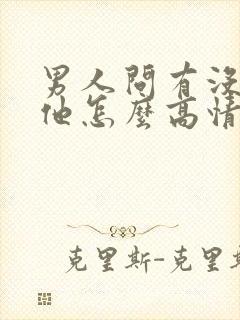 男人問有沒
他怎麼高情
克里斯-克里斯